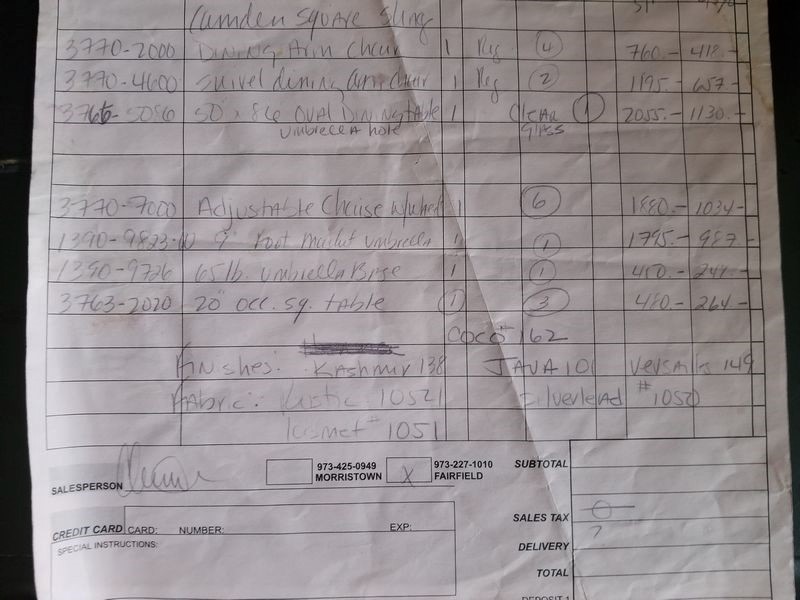 Camden Square Sling
3770-2000 Dining Arm Chair 1 Reg 4 760.- 418.-
3770-4600 Swivel dining arm chair 1 Reg 2 1195.- 657.-
5086 50" x 86 OVAL Dining table 1 Clear 1 2055.- 1130.-
umbrella hole glass
3770-7000 Adjustable Chaise w/wheel 1 6 1880.- 1034.-
1390-9823- 9' Market umbrella 1 1 1795.- 987.-
1390-9726 65 lb. umbrella Base 1 1
3763-2020 20" occ. sq. table 1 3 480.- 264.-
COCO # 162
Finishes: Kashmir 138 JAVA 101 149
Fabric: Rustic 10521 Silverlead #1050
Kismet # 1051
973-425-0949 973-227-1010 SUBTOTAL
SALESPERSON MORRISTOWN X FAIRFIELD
SALES TAX 0
CREDIT CARD CARD: NUMBER: EXP:
SPECIAL INSTRUCTIONS: DELIVERY ?
TOTAL
DEPOSIT 1